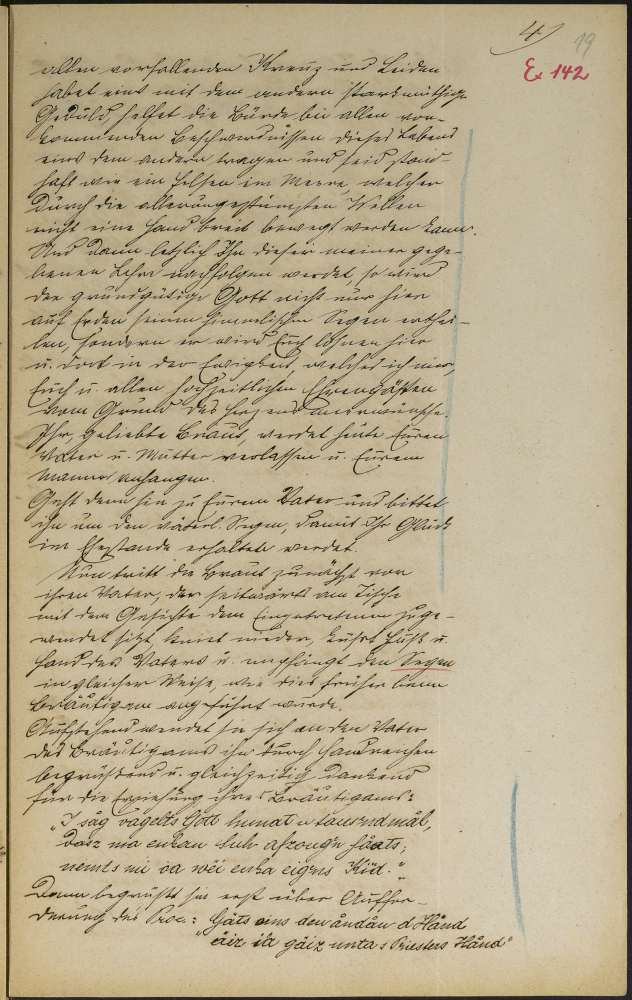 4) 19
Ex 142
allen vorfallenden Kreuz und Leiden
habet eins mit dem andern starkmüthige
Geduld, helfet die Bürde bei allen vor-
kommenden Beschwernissen dieses Lebens
eins dem andern tragen und seid stand-
haft wie ein Felsen im Meere, welcher
durch die allerungestümesten Wellen
nicht eine Hand breit bewegt werden kann.
Und dann letzlich Ihr dieser meiner gege-
benen Lehre nachfolgen werdet, so wird
der grundgütige Gott nicht nur hier
auf Erden seinen himmlischen Segen erthei-
len, sondern er wird Euch lohnen hier
u. dort in der Ewigkeit, welches ich nun
Euch u. allen hochzeitlichen Ehrengästen
vom Grund des Herzens anerwünsche.
Ihr, geliebte Braut, werdet heute Euren
Vater u. Mutter verlassen u. Eurem
Manne anhangen.
Geht denn hin zu Eurem Vater und bittet
ihn um den väterl. Segen, damit Ihr Glück
im Ehestande erhalten werdet.
Nun tritt die Braut zunächst vor
ihren Vater, der seitwärts am Tische
mit dem Gesichte dem Eingetretenen zuge-
wendet sitzt kniet nieder, küßt Füße u.
Hand des Vaters u. empfängt den Segen
in gleicher Weise, wie dies früher beim
Bräutigam angeführt wurde.
Aufstehend wendet sie sich an den Vater
des Bräutigams ihn durch Handreichen
begrüßend u. gleichzeitig dankend
für die Erziehung ihres Bräutigams:
"I såg vagelts Gott hunat u tausndmål,
dasz ma enkan Suh afzougn håats;
nemts mi oa wëi enka eigns Kiid."
Dann begrüßt sie erst über Auffor-
derung des Proc.: Gäts ains den åndån d'Hånd
"äiz ih gäiz unta s Priesters Hånd"